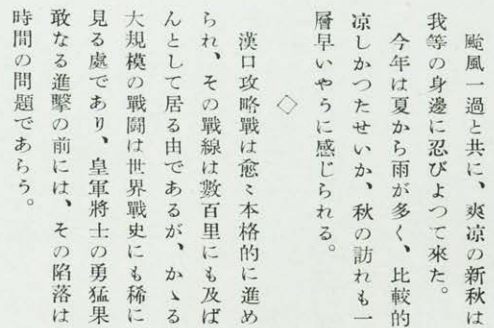 颱風一過と共に、爽凉の新秋は
我等の身邊に忍びよつて來た。
今年は夏から雨が多く、比較的
凉しかつたせいか、秋の訪れも一
層早いやうに感じられる。
◇
漢口攻略戰は愈〻本格的に進め
られ、その戰線は數百里にも及ば
んとして居る由であるが、かゝる
大規模の戰鬪は世界戰史にも稀に
見る處であり、皇軍將士の勇猛果
敢なる進擊の前には、その陷落は
時間の問題であらう。